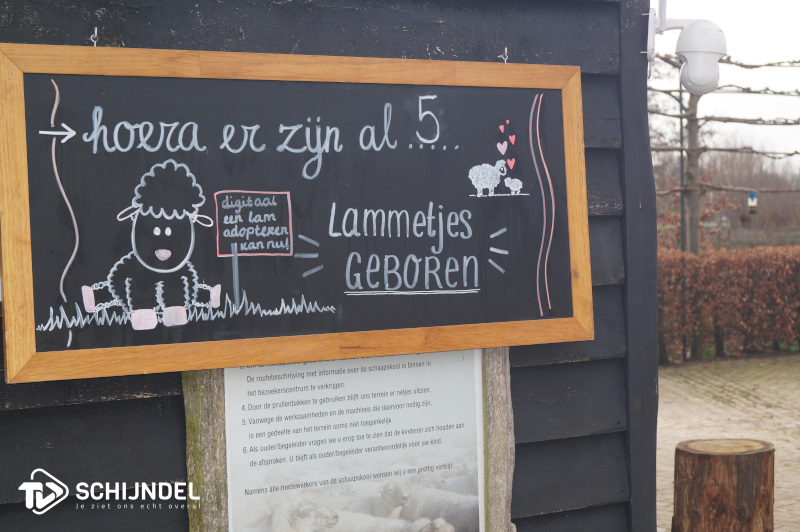 hoera er zijn al 5.....
digitaal
een lam
adopteren
kan nu!
Lammetjes
GEBOREN
De routebeschrijving met informatie over de schaapskooi is binnen in
het bezoekerscentrum te verkrijgen.
4. Door de prullenbakken te gebruiken blijft ons terrein er netjes uitzien.
5. Vanwege de werkzaamheden en de machines die daarvoor nodig zijn,
is een gedeelte van het terrein soms niet toegankelijk.
6. Als ouder/begeleider vragen we u erop toe te zien dat de kinderen zich houden aan
de afspraken. U blijft als ouder/begeleider verantwoordelijk voor uw kind.
Namens alle medewerkers van de schaapskooi wensen wij u een prettig verblijf.
TV SCHIJNDEL
Je ziet ons echt overal